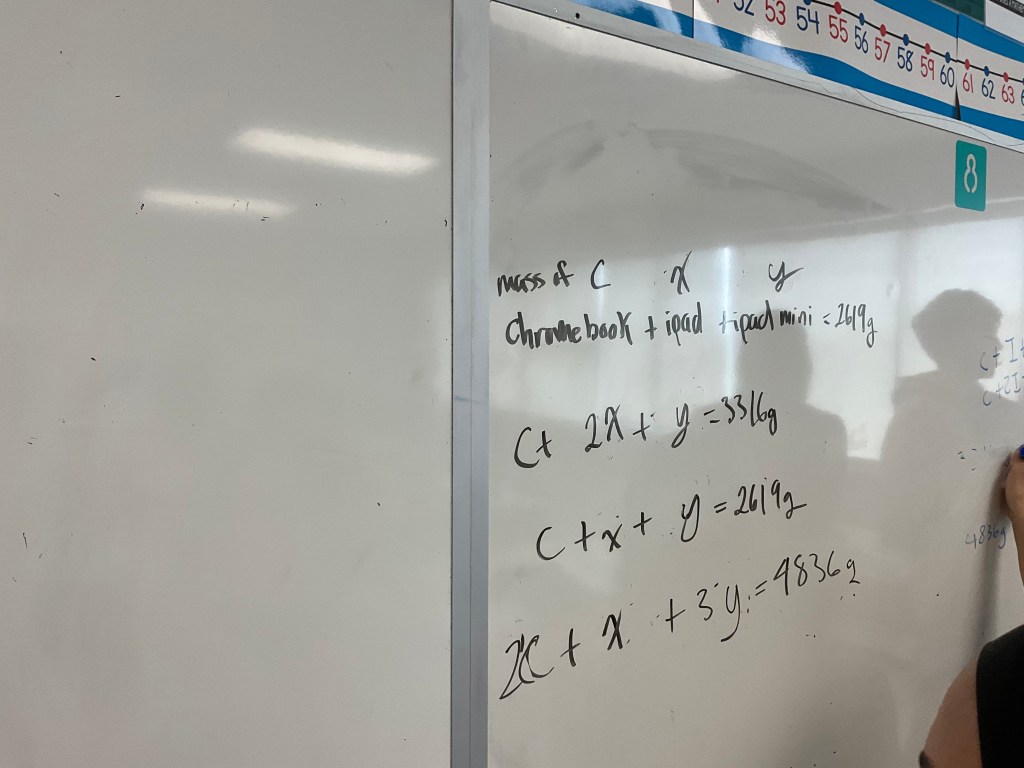 52 53 54 55 56 57 58 59 60 61 62 63
8
mass of C x y
Chromebook + ipad + ipad mini = 2619g
C + 2x + y = 3316g
C + x + y = 2619g
2C + x + 3y = 4836g
4836g